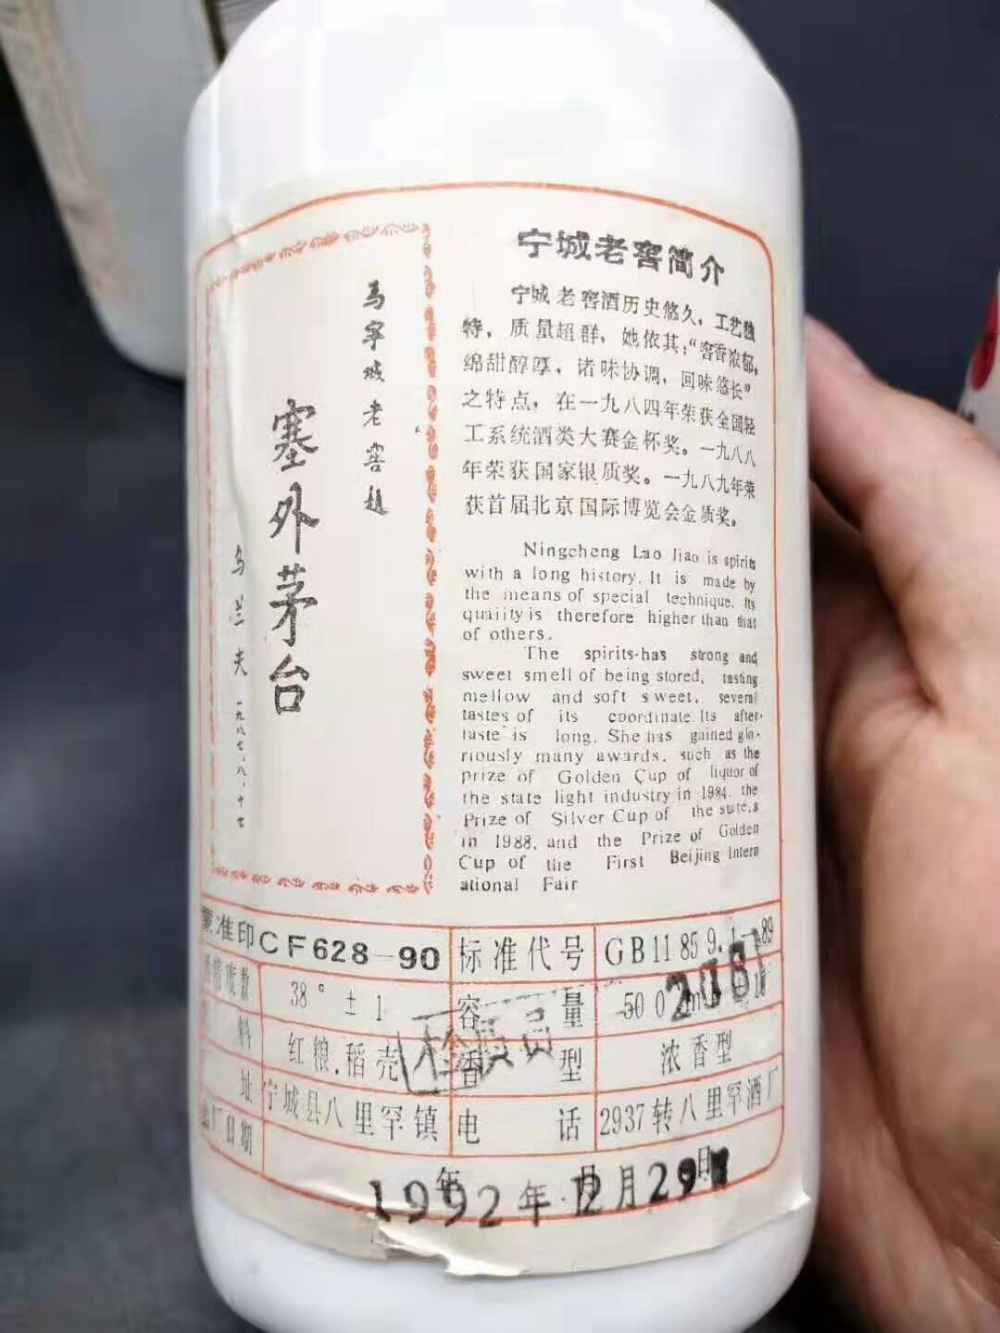 为宁城老窖题
塞外茅台
乌兰夫
一九八七.八.十七
宁城老窖简介
宁城老窖酒历史悠久，工艺独
特，质量超群，她依其：“窖香浓郁，
绵甜醇厚，诸味协调，回味悠长”
之特点，在一九八四年荣获全国轻
工系统酒类大赛金杯奖。一九八八
年荣获国家银质奖。一九八九年荣
获首届北京国际博览会金质奖。
Ningcheng Lao Jiao is spirits
with a long history. It is made by
the means of special technique. Its
quality is therefore higher than that
of others.
The spirits-has strong and
sweet smell of being stored, tasting
mellow and soft sweet, several
tastes of its coordinate. Its after-
taste is long. She has gained glo-
riously many awards, such as the
prize of Golden Cup of liquor of
the state light industry in 1984. the
Prize of Silver Cup of the state,s
in 1988, and the Prize of Golden
Cup of the First Beijing Intern
ational Fair
蒙准印CF628-90 标准代号 GB11859.1-89
度数 38°±1 容量 500ml
料 红粮.稻壳 香型 浓香型
址 宁城县八里罕镇 电话 2937转八里罕酒厂
出厂日期 年 月 日
检质员
1992年12月29日